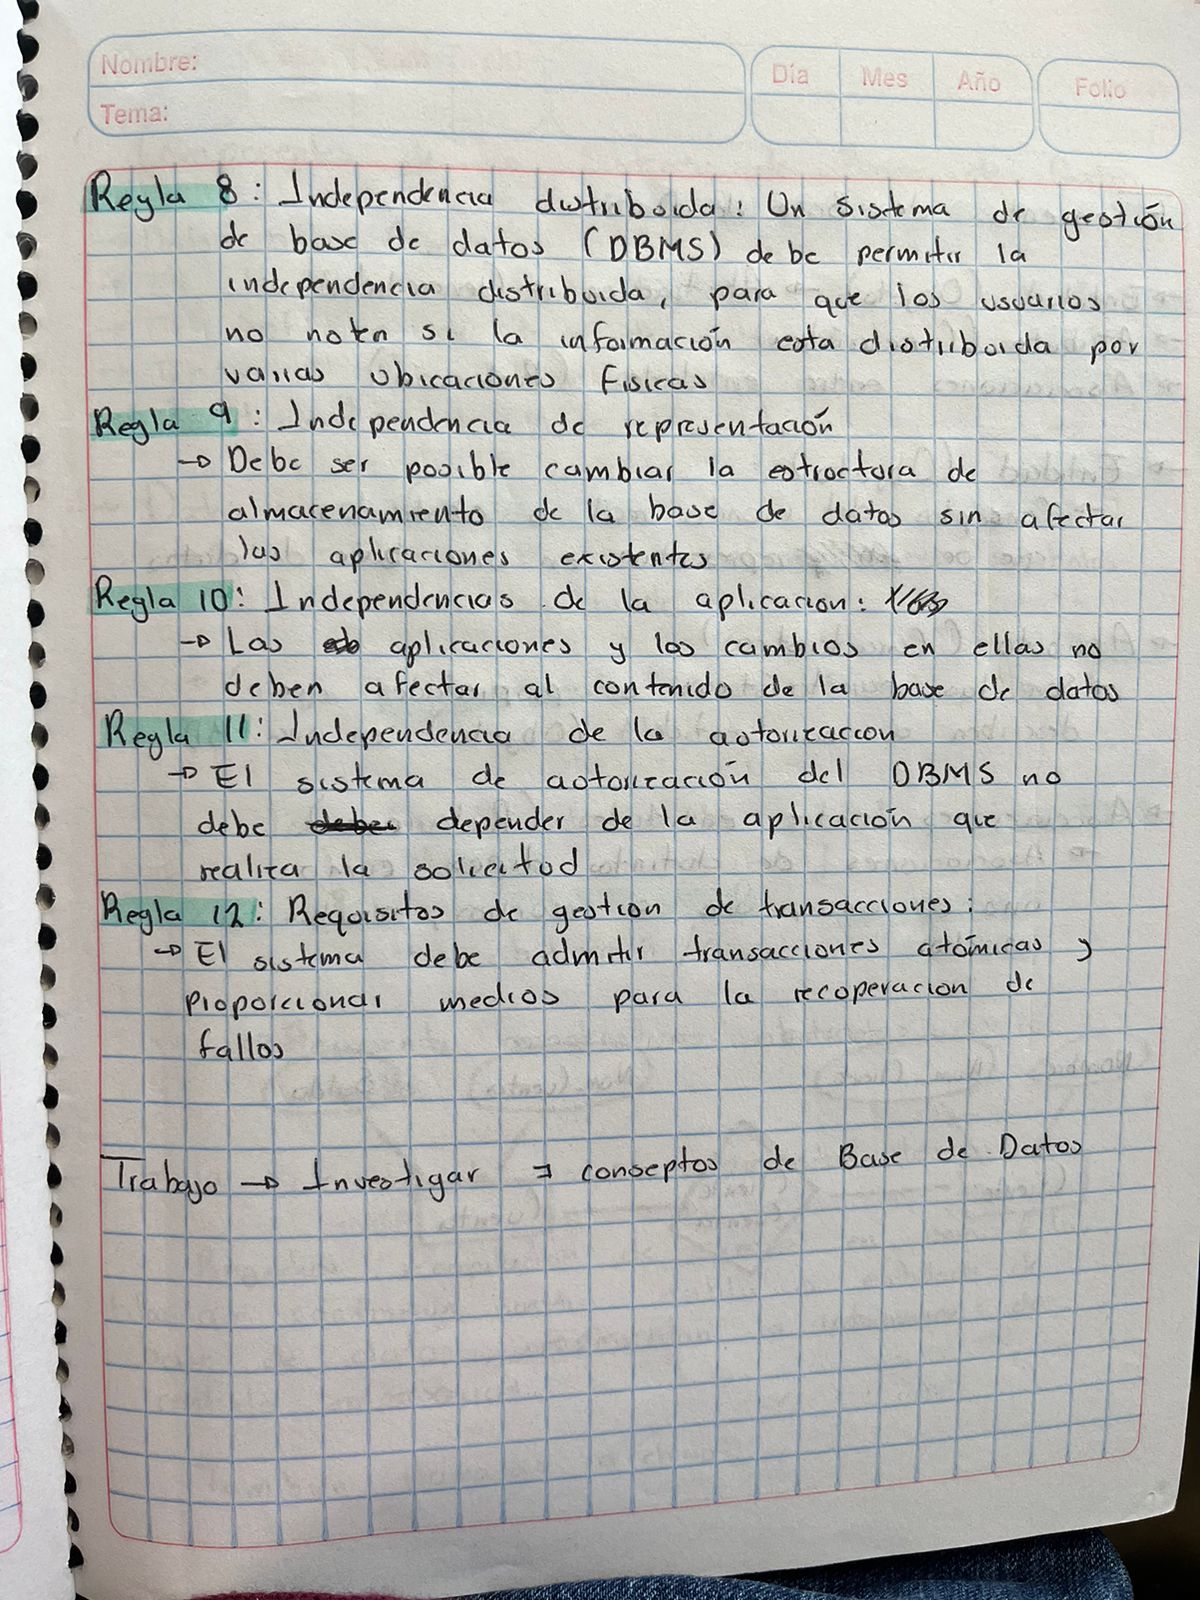 Nombre:
Tema:
Día Mes Año Folio
Regla 8: Independencia distribuida: Un sistema de gestión
de base de datos (DBMS) debe permitir la
independencia distribuida, para que los usuarios
no noten si la información esta distribuida por
varias ubicaciones fisicas
Regla 9: Independencia de representación
→ Debe ser posible cambiar la estructura de
almacenamiento de la base de datos sin afectar
las aplicaciones existentes
Regla 10: Independencias de la aplicacion:
→ Las aplicaciones y los cambios en ellas no
deben afectar al contenido de la base de datos
Regla 11: Independencia de la autorizacion
→ El sistema de autorización del DBMS no
debe debe depender de la aplicación que
realiza la solicitud
Regla 12: Requisitos de gestion de transacciones:
→ El sistema debe admitir transacciones atómicas y
proporcionar medios para la recuperacion de
fallos
Trabajo → Investigar conseptos de Base de Datos